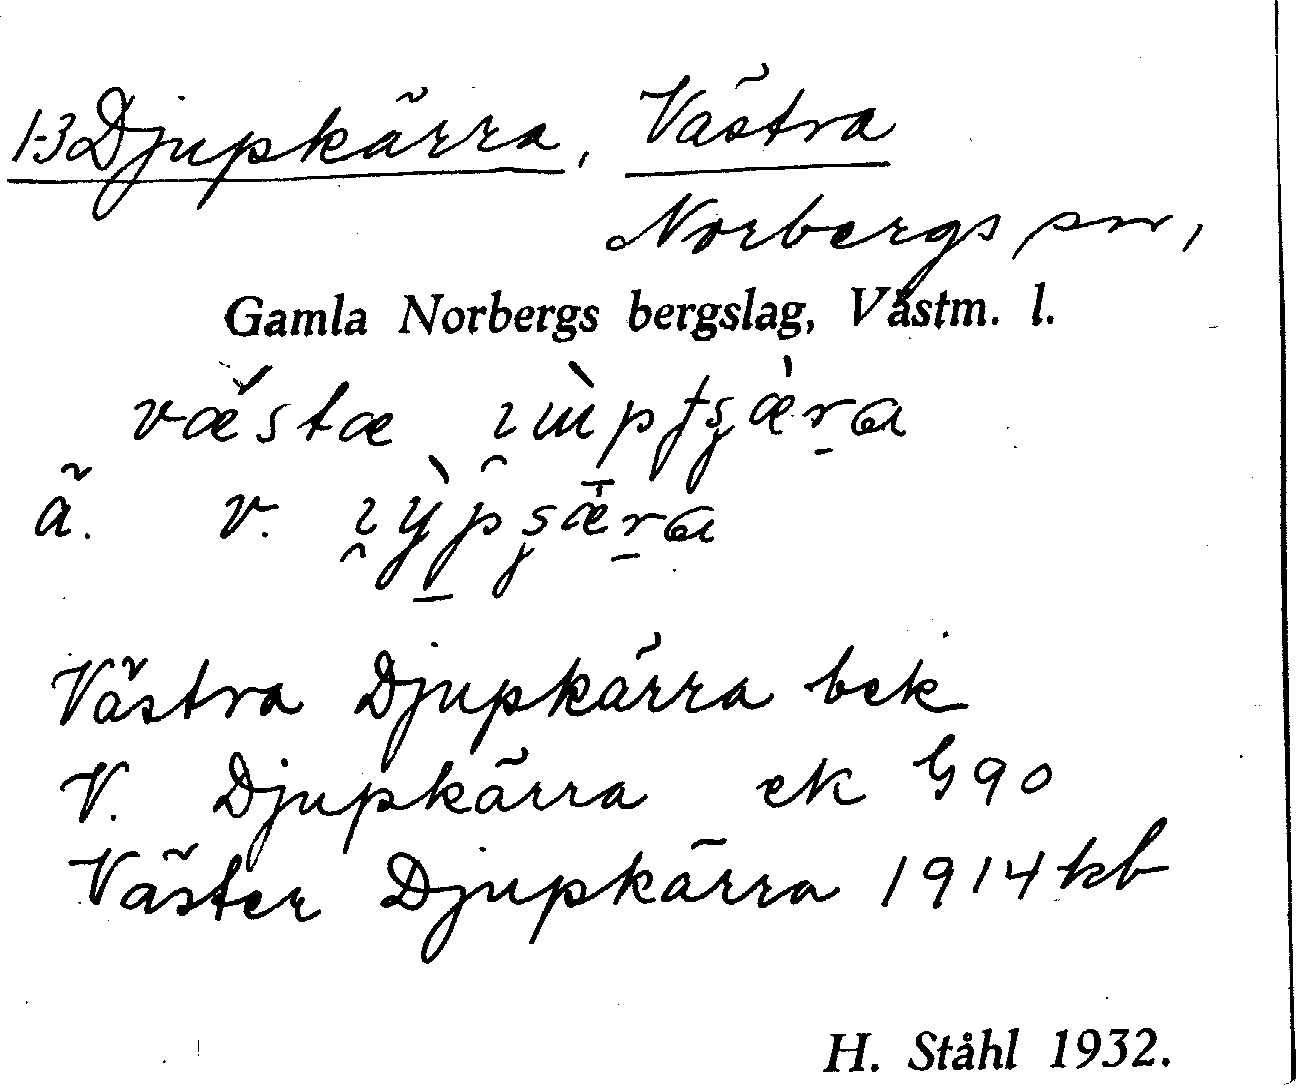 1-3 Djupkärra, Västra
Norbergs sn,
Gamla Norbergs bergslag, Västm. l.
væ̆stæ
ä. v.
Västra Djupkärra bek
V. Djupkärra ek G90
Väster Djupkärra 1914 kb
H. Ståhl 1932.